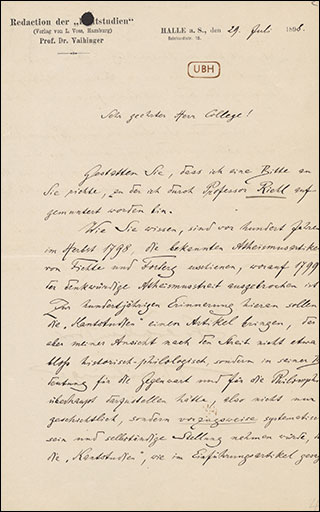 Redaction der „Kantstudien“
(Verlag von L. Voss, Hamburg)
Prof. Dr. Vaihinger
HALLE a. S., den 29. Juli 1898.
Reichardtstr. 15.
UBH
Sehr geehrter Herr College!
Gestatten Sie, dass ich eine Bitte an
Sie richte, zu der ich durch Professor Riehl auf
gemuntert worden bin.
Wie Sie wissen, sind vor hundert Jahren
im Herbst 1798 die bekannten Atheismusartikel
von Fichte und Forberg erschienen, worauf 1799
der denkwürdige Atheismusstreit ausgebrochen ist
Zur hundertjährigen Erinnerung hieran sollen
die „Kantstudien“ einen Artikel bringen, der
aber meiner Ansicht nach den Streit nicht etwa
bloss historisch-philologisch, sondern in seiner Be
deutung für die Gegenwart und für die Philosophie
überhaupt darzustellen hätte, also nicht nur
geschichtlich, sondern vorzugsweise systematisch
sein und selbständige Stellung nehmen würde,
die „Kantstudien“, wie im Einführungsartikel